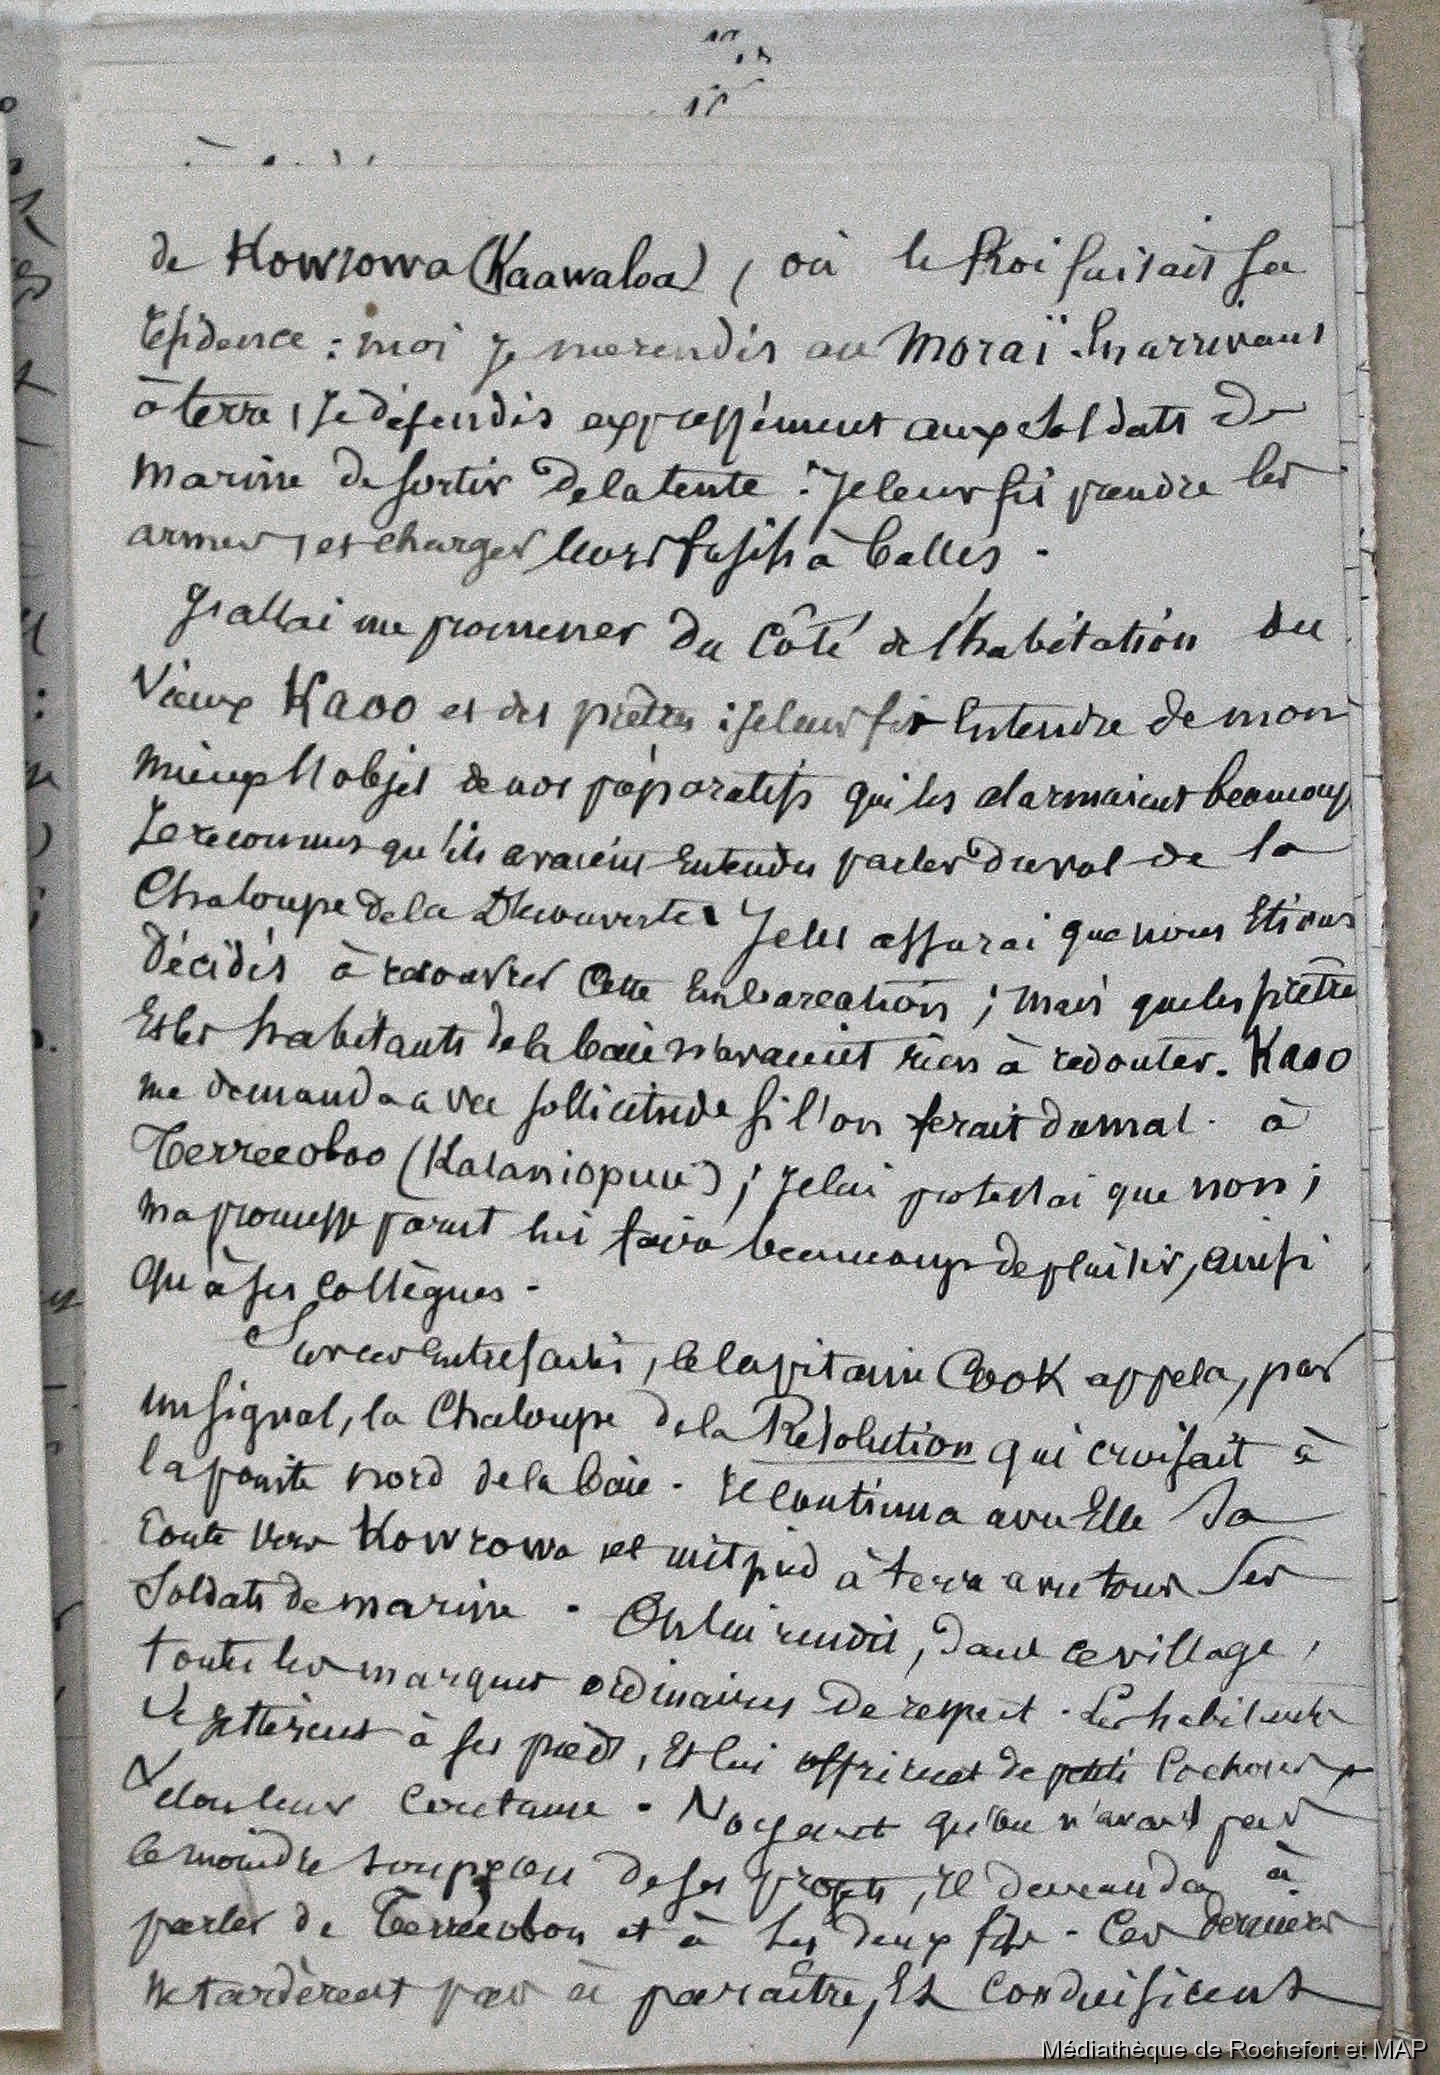 de Kowrowa (Kaawaloa), où le Roi faisait sa
résidence : moi je me rendis au Moraï. En arrivant
à terre, je défendis expressément aux soldats de
marine de sortir de la tente : Je leur fis prendre les
armes, et charger leurs fusils à balles.
J'allai me promener du côté de l'habitation du
vieux Kaoo et des prêtres : je leur fis entendre de mon
mieux l'objet de nos préparatifs qui les alarmaient beaucoup
Je reconnus qu'ils avaient entendu parler du vol de la
Chaloupe de la Découverte. Je les assurai que nous étions
décidés à recouvrer cette embarcation ; mais que les prêtres
et les habitants de la baie n'avaient rien à redouter. Kaoo
me demanda avec sollicitude si l'on ferait du mal à
Terreeoboo (Kalaniopuu) ; je lui protestai que non ;
ma promesse parut lui faire beaucoup de plaisir, ainsi
qu'à ses collègues.
Sur ces entrefaites, le Capitaine Cook appela, par
un signal, la Chaloupe de la Résolution qui croisait à
la pointe nord de la baie. Il continua avec elle sa
route vers Kowrowa et mit pied à terre avec tous ses
soldats de marine. On lui rendit, dans ce village,
toutes les marques ordinaires de respect. Les habitants
se jettèrent à ses pieds, et lui offrirent de petits cochons
selon leur coutume. Voyant qu'on n'avait pas
le moindre soupçon de ses projets, il demanda à
parler de Terreeoboo et à ses deux fils. Ces derniers
ne tardèrent pas à paraître, et conduisirent
Médiathèque de Rochefort et MAP